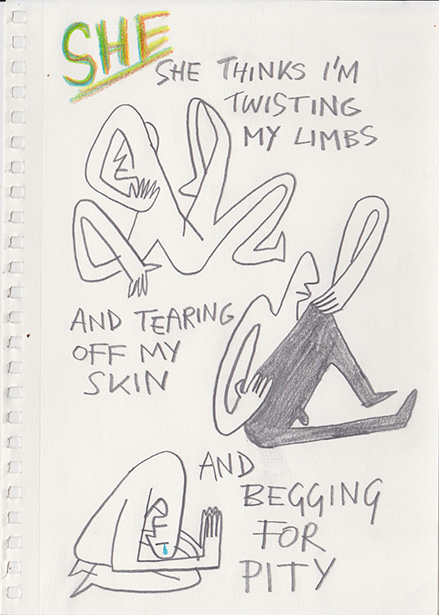 SHE
SHE THINKS I'M
TWISTING
MY LIMBS
AND TEARING
OFF MY
SKIN
AND
BEGGING
FOR
PITY